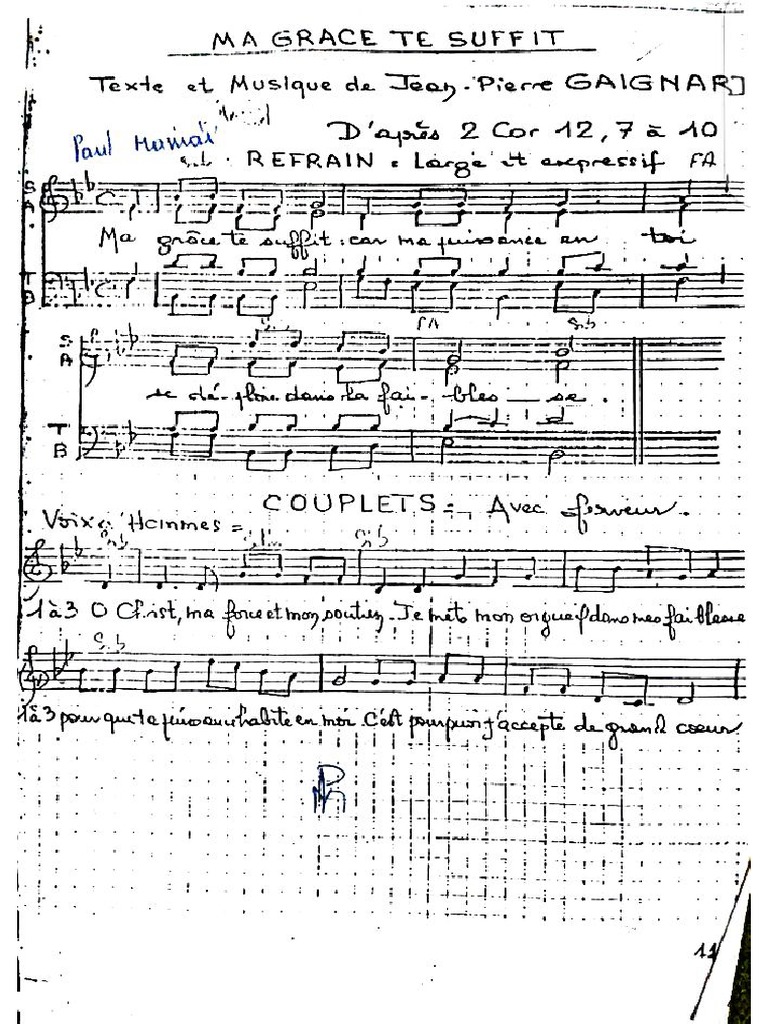 MA GRACE TE SUFFIT
Texte et Musique de Jean-Pierre GAIGNARD
D'après 2 Cor 12, 7 à 10
Paul
Sib REFRAIN : Large et expressif FA
S
A
Ma grâce te suffit : car ma puissance en toi
T
B
FA Sib
S
A
se dé-ploie dans la fai-bles-se.
T
B
COUPLETS = Avec ferveur.
Voix Hommes =
Sib
1 à 3 O Christ, ma force et mon soutien. Je mets mon orgueil dans mes faiblesse
Sib
1 à 3 pour que ta puissance habite en moi C'est pourquoi j'accepte de grand coeur
11